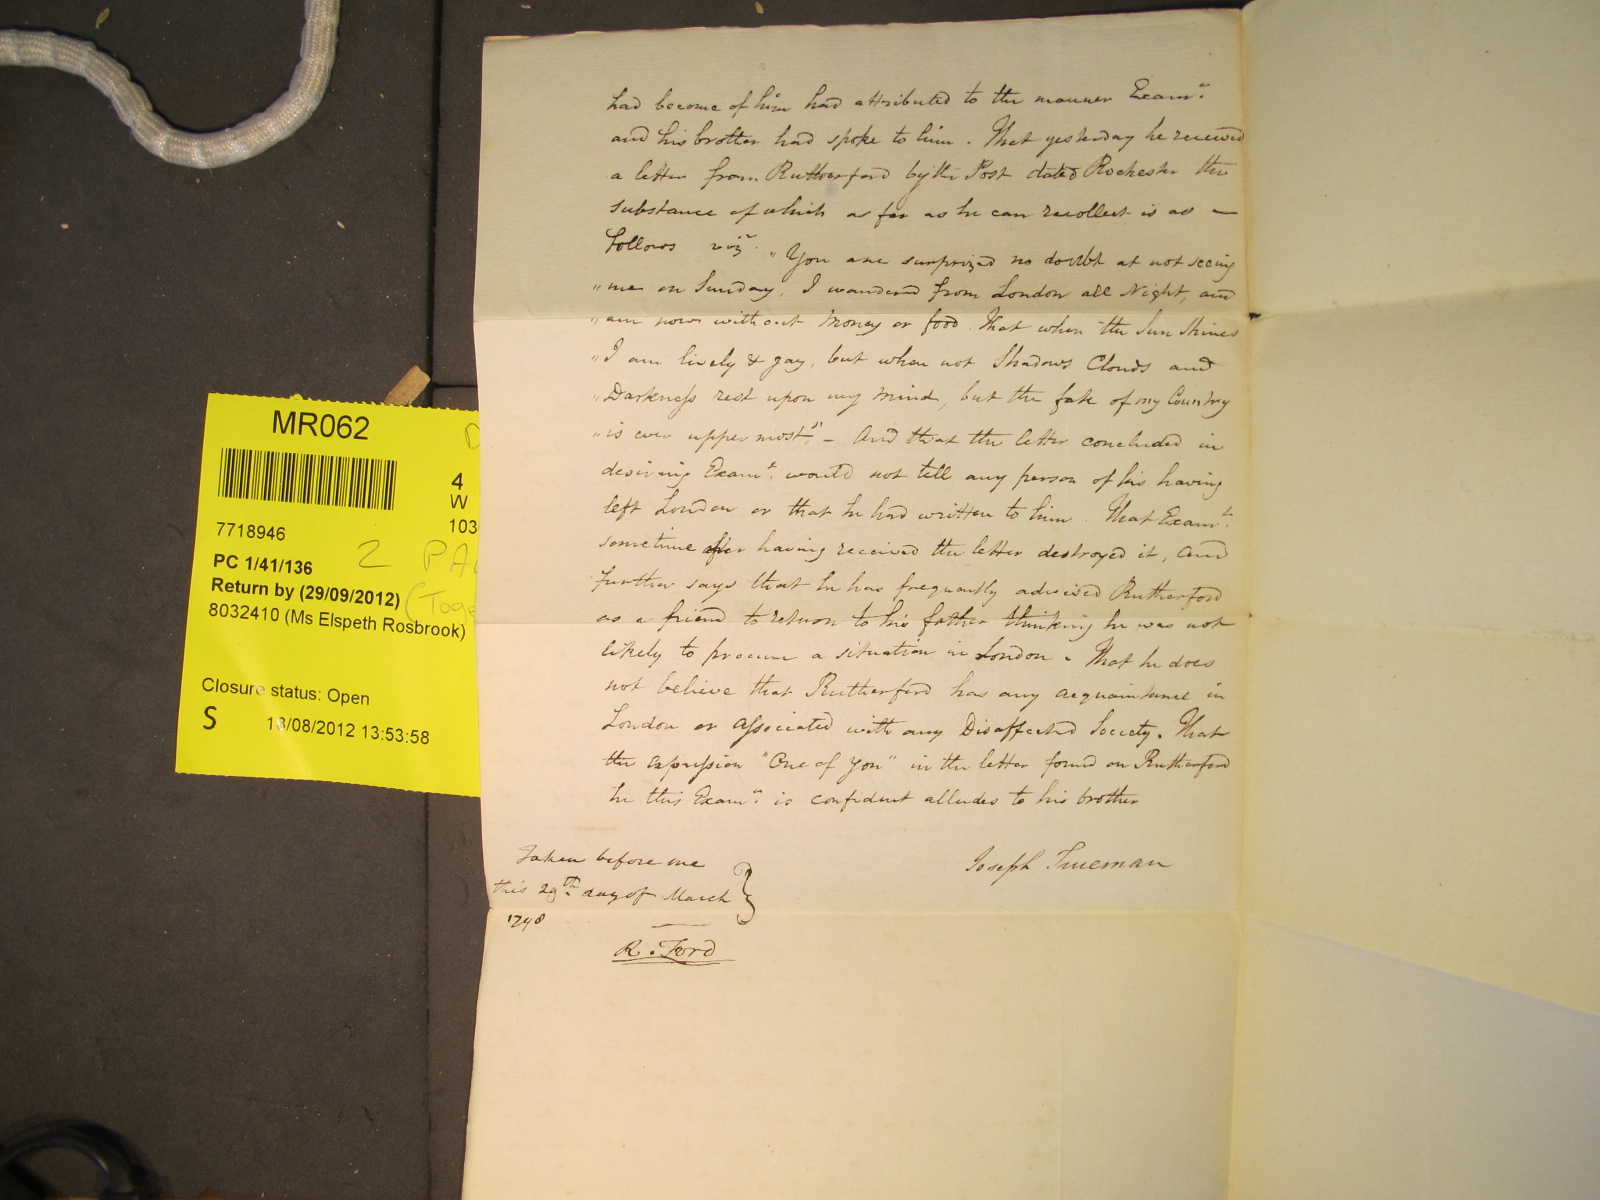 had become of him had attributed to the manner Examt.
and his brother had spoke to him. That yesterday he received
a letter from Rutherford by the Post dated Rochester the
substance of which as far as he can recollect is as —
follows vizt. "You are surprized no doubt at not seeing
"me on Sunday. I wandered from London all Night, and
"am now without Money or food. That when the Sun Shines
"I am lively & gay, but when not Shadows Clouds and
"Darkness rest upon my mind, but the fate of my Country
"is ever uppermost," – And that the letter concluded in
desiring Examt. would not tell any person of his having
left London or that he had written to him. That Examt.
sometime after having received the letter destroyed it, and
further says that he has frequently advised Rutherford
as a friend to return to his father thinking he was not
likely to procure a situation in London. That he does
not believe that Rutherford has any acquaintance in
London or associated with any Disaffected Society. That
the expression "One of You" in the letter found on Rutherford
he this Examt. is confident alludes to his brother
Joseph Trueman
Taken before me
this 29th. day of March
1798
R. Ford
MR062
4
W
7718946
103
2 PA
PC 1/41/136
Return by (29/09/2012)
(Toge
8032410 (Ms Elspeth Rosbrook)
Closure status: Open
S 18/08/2012 13:53:58